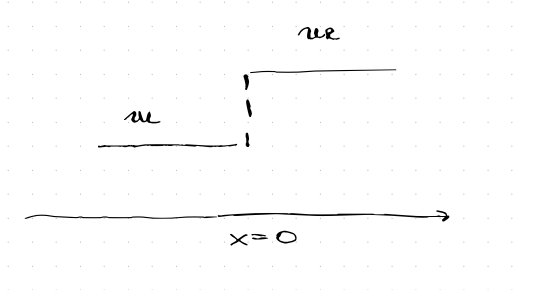 uR
uL
x=0